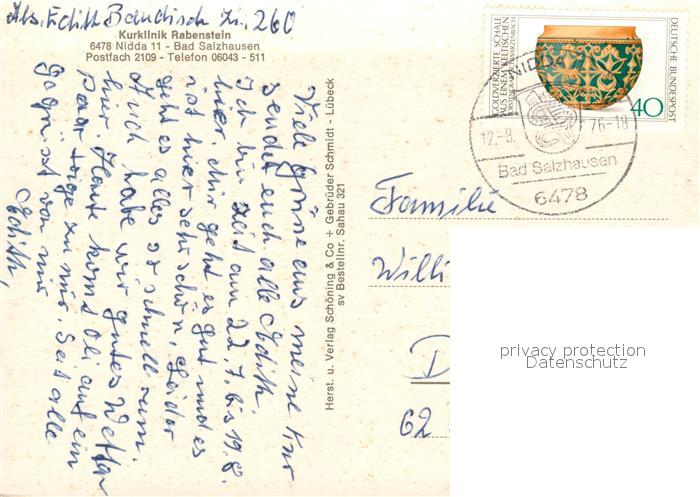 Abs. Edith Bandisch Zi. 260
Kurklinik Rabenstein
6478 Nidda 11 - Bad Salzhausen
Postfach 2109 - Telefon 06043 - 511
Viele Grüsse aus meine Kur
sendet euch alle Edith.
Ich bin zeit am 22.7. bis 19.8.
hier. Mir geht es gut und es
ist hier sehr schön. Leider
geht es alles so schnell rum.
Auch habe wir gutes Wetter
hier. Heute komt Oli auf ein
Paar tage zu mir. Seit alle
gegrüst von mir
Edith,
Herst. u. Verlag Schöning & Co + Gebrüder Schmidt - Lübeck
sv Bestellnr. Sahau 321
GOLDVERZIERTE SCHALE
AUS EINEM KELTISCHEN
FÜRSTENGRAB SCHWARZENBACH
DEUTSCHE BUNDESPOST
40
NIDDA
12.-8. 76-18
Bad Salzhausen
6478
Familie
Willi
D
62
privacy protection
Datenschutz